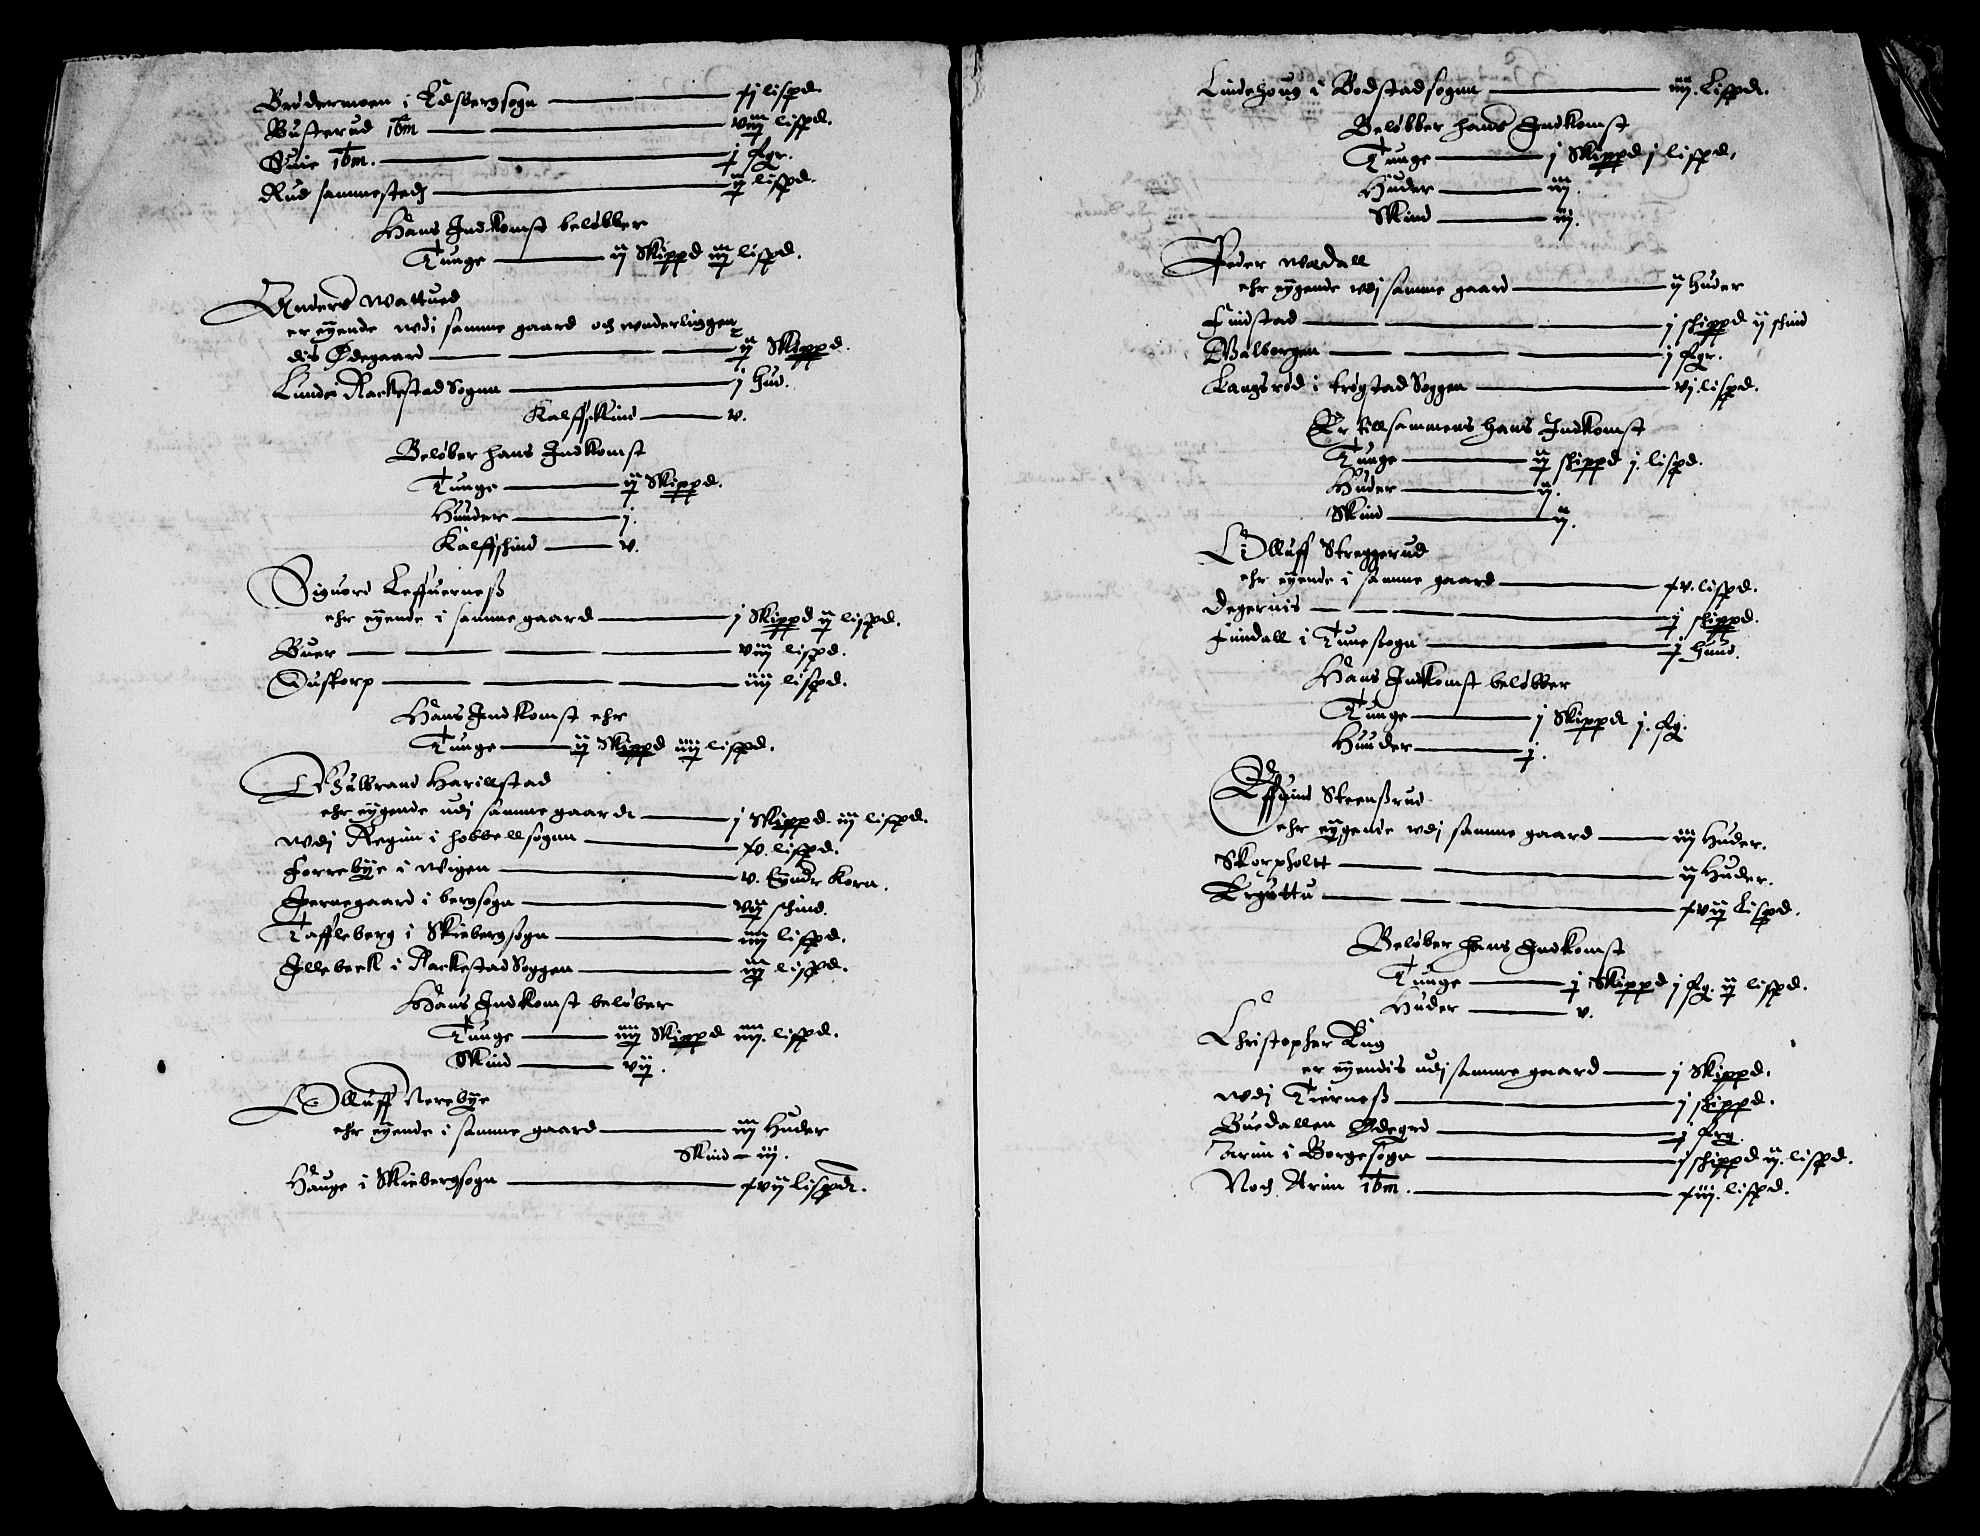 Brødermoen i Edsbergsogn — xj lispd.
Busterud ibm — viij lispd.
Buie ibm. — j fgr.
Rud sammestedz — ij lispd.
Hans Indkomst beløbber
Tunge — ij Skippd iiij lispd.
Anders Wattued
er eyende wdi samme gaard och wnderliggen-
dis Ødegaard — ij Skippd.
Lunde i Rackestad Sognn — j hud.
Kalffskind — v.
Beløber hans Indkomst
Tunge — ij Skippd.
Huuder — j.
Kalffschind — v.
Siguord Leffuerneß
ehr eyende i samme gaard — j Skippd ij lispd.
Buer — viij lispd.
Dustorp — iiij lispd.
Hans Indkomst ehr
Tunge — ij Skippd iiij lispd.
Gulbrand Harillstad
ehr eygende udj samme gaard — j Skippd. iij lispd.
wdj Regim i hobbellsognn — xv. lispd.
Forrebye i Wigen — v. Korn.
Pernegaard i bergsogn — vij schind.
Taffleberg i Skiebergsogn — iiij lispd.
Illebeck i Rackestad Soggen — iij lispd.
Hans Indkomst beløber
Tunge — iiij Skippd iiij. lispd.
Skind — vij.
Olluff Nerebye
ehr eyende i samme gaard — iiij Huder
Skind — iij.
Hauge i Skiebergsogn — xvij lispd.
Lindehoug i Bodstad sognn — iiij. Lispd.
Beløbber hans Indkomst
Tunge — j Skippd j lispd.
Huder — iiij.
Skind — iij.
Peder Wedall
ehr eygende wdj samme gaard — ij Huder
Findstad — j schippd ij schind
Walborgen — j fgr.
Langsrød i trøgstad Soggen — vj. lispd.
Er tillsammens hans Indkomst
Tunge — ij schippd j. lispd.
Huder — ij.
Skind — ij.
Olluff Streggerud
ehr eyende i samme gaard — xv. lispd.
Degernis — j schippd.
Fundall i Tunesogn — j huud.
Hans Indkomst beløbber
Tunge — j Skippd j. fg.
Huuder — j.
Effuind Steenßrud
ehr eygende wdj samme gaard — iij Huder.
Skorpholtt — ij Huder.
Erguttu — xvij Lispd.
Beløber hans Indkomst
Tunge — j Skippd j fg. ij lispd.
Huder — v.
Christopher Rug
er eyendis udj samme gaard — j Skippd.
wdj Tierneß — j schippd.
Buedallen Ødegrd — j frg.
Arim i Borgesogn — j schippd ij. lispd.
Noch Arim ibm. — xiij. lispd.